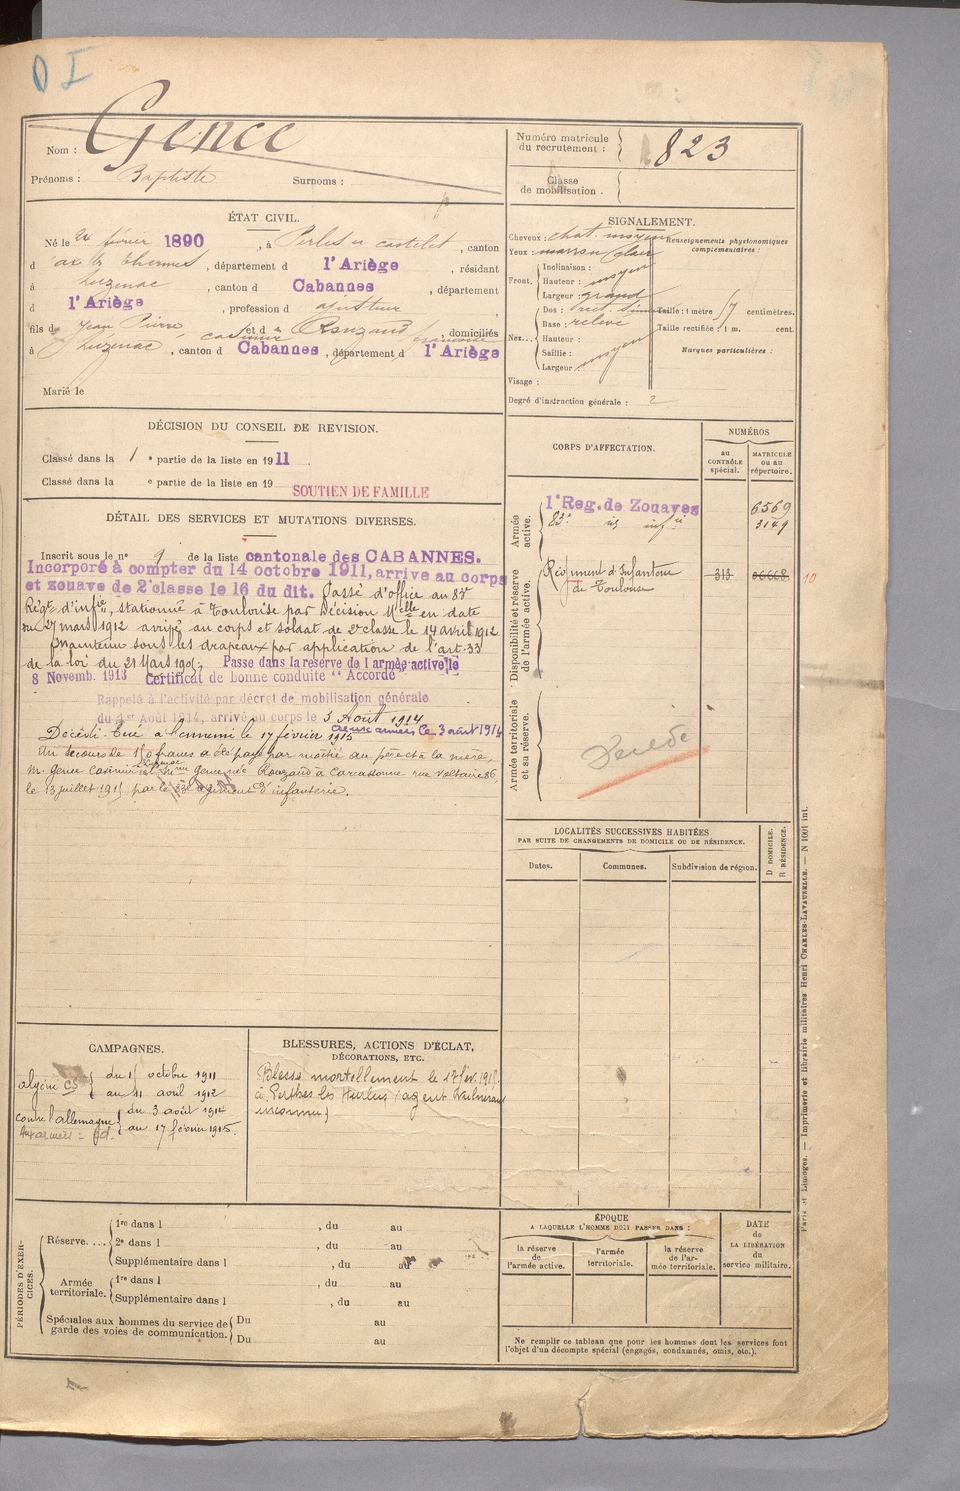 0 I
Nom : Gence
Prénoms : Baptiste Surnoms :
Numéro matricule du recrutement : 823
Classe de mobilisation.
ÉTAT CIVIL.
Né le février 1890, à Perles et castelet, canton
d'ax les thermes, département d l'Ariège, résidant
à Luzenac, canton d Cabannes, département
d l'Ariège, profession d ajusteur
fils d Jean Pierre, casimir et d Rouzaud françoise, domiciliés
à Luzenac, canton d Cabannes, département d l'Ariège
Marié le
SIGNALEMENT.
Cheveux : chat. moyen
Yeux : marron clair
Renseignements physionomiques complémentaires :
Front.
Inclinaison :
Hauteur : moyen
Largeur : grand
Nez...
Dos : rect.
Base : relevé
Hauteur :
Saillie : moyen
Largeur :
Taille : 1 mètre centimètres.
Taille rectifiée : 1 m. cent.
Marques particulières :
Visage :
Degré d'instruction générale : 2
DÉCISION DU CONSEIL DE REVISION.
Classé dans la 1 e partie de la liste en 1911.
Classé dans la e partie de la liste en 19
SOUTIEN DE FAMILLE
DÉTAIL DES SERVICES ET MUTATIONS DIVERSES.
Inscrit sous le n° 9 de la liste cantonale des CABANNES.
Incorporé à compter du 14 octobre 1911, arrivé au corps
et zouave de 2e classe le 16 du dit. Passé d'office au 83e
Régt d'infie, stationné à Toulouse par Décision Mlle en date
du 27 mars 1912 arrivé au corps et soldat de 2e classe le 14 avril 1912
Maintenu sous les drapeaux par application de l'art. 33
de la loi du 21 Mars 1905, Passé dans la réserve de l'armée active le
8 Novemb. 1913 Certificat de bonne conduite "Accordé"
Rappelé à l'activité par décret de mobilisation générale
du 1er Août 1914, arrivé au corps le 3 Août 1914
Décédé. Tué à l'ennemi le 17 février 1915 aux armées le 3 août 1914
Un secours de 150 francs a été payé par moitié au père et à la mère,
M. Gence Casimir et Mme Gence née Rouzaud à Carcassonne rue Voltaire 86,
le 13 juillet 1915 par le 83e régiment d'infanterie.
CORPS D'AFFECTATION.
NUMÉROS
au CONTRÔLE spécial.
MATRICULE ou au répertoire.
Armée active.
1er Reg. de Zouaves 6569
83e infie 3149
Disponibilité et réserve de l'armée active.
Régiment d'Infanterie 313 10
de Toulouse
Armée territoriale et sa réserve.
Décédé
LOCALITÉS SUCCESSIVES HABITÉES
PAR SUITE DE CHANGEMENTS DE DOMICILE OU DE RÉSIDENCE.
Dates. Communes. Subdivision de région.
D DOMICILE.
R RÉSIDENCE.
CAMPAGNES.
algérie du 15 octobre 1911
au 11 avril 1912
contre l'allemagne du 3 août 1914
au 17 février 1915.
BLESSURES, ACTIONS D'ÉCLAT,
DÉCORATIONS, ETC.
Blessé mortellement le 17 fév. 1915
à Perthes les Hurlus (agent vulnérant
inconnu)
PÉRIODES D'EXERCICES.
Réserve....
1re dans l , du au
2e dans l , du au
Supplémentaire dans l , du au
Armée territoriale.
1re dans l , du au
Supplémentaire dans l , du au
Spéciales aux hommes du service de garde des voies de communication.
Du au
Du au
ÉPOQUE
A LAQUELLE L'HOMME DOIT PASSER DANS :
la réserve de l'armée active.
l'armée territoriale.
la réserve de l'armée territoriale.
DATE
de
LA LIBÉRATION
du
service militaire.
Ne remplir ce tableau que pour les hommes dont les services font
l'objet d'un décompte spécial (engagés, condamnés, omis, etc.).
Paris et Limoges. — Imprimerie et librairie militaires Henri CHARLES-LAVAUZELLE. — N 1001 int.